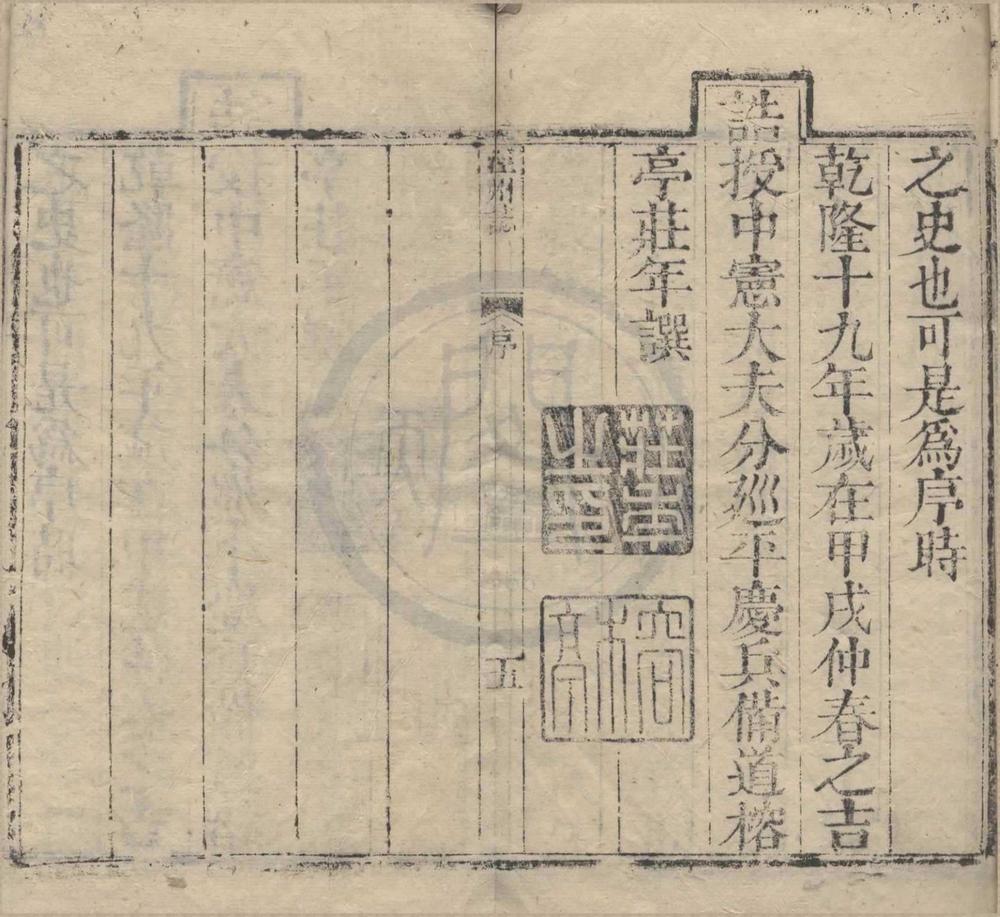 之史也可是為序時
乾隆十九年歲在甲戌仲春之吉
誥授中憲大夫分巡平慶兵備道榕
亭莊年譔
莊年之印
榕亭
州志
序
五